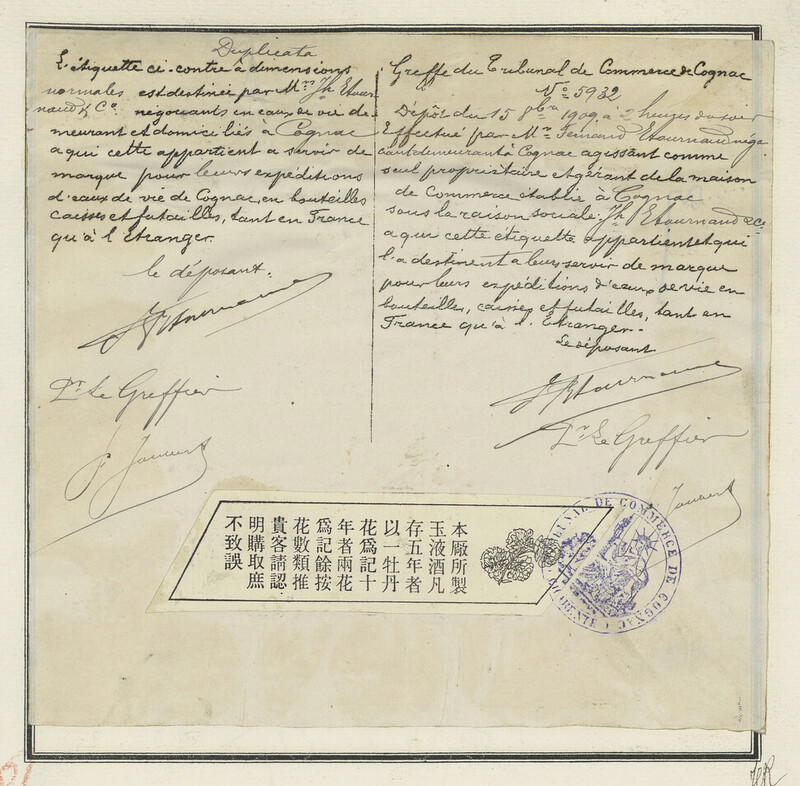 Duplicata
L'étiquette ci-contre à dimensions
normales est destinée par M.rs J.h Etour-
naud & C.o négociants en eaux de vie de-
meurant et domiciliés à Cognac
a qui cette appartient a servir de
marque pour leurs expéditions
d'eaux de vie de Cognac, en bouteilles
caisses et futailles, tant en France
qu'à l'Etranger.
le déposant.
P.r Le Greffier
Greffe du Tribunal de Commerce de Cognac
N.o 5932
Dépôt du 15 8bre 1909, à 2 heures du soir
Effectué par M.r Fernand Etournaud négo-
ciant demeurant à Cognac agissant comme
seul propriétaire et gérant de la maison
de Commerce établie à Cognac
sous la raison sociale: J.h Etournaud & C.o
a qui cette étiquette appartient et qui
l'a destinent a leur servir de marque
pour leurs expéditions d'eaux de vie en
bouteilles, caisses et futailles, tant en
France qu'à l'Etranger.
Le déposant
P.r Le Greffier
本廠所製
玉液酒凡
存五年者
以一牡丹
花爲記十
年者兩花
爲記餘按
花數類推
貴客請認
明購取庶
不致誤
TRIBUNAL DE COMMERCE DE COGNAC
(CHARENTE)